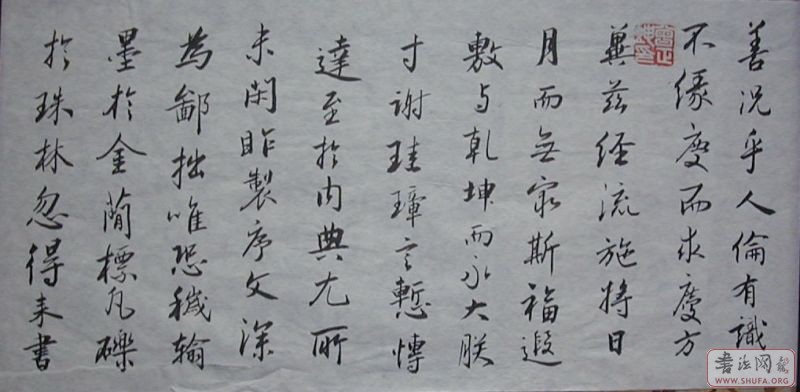 善况乎人倫有識
不緣慶而求慶方
冀茲經流施將日
月而無窮斯福遐
敷与乾坤而永大朕
才謝珪璋言慙博
達至於内典尤所
未閑昨製序文深
為鄙拙唯恐穢翰
墨於金簡標瓦礫
於珠林忽得来書
WWW.SHUFA.ORG